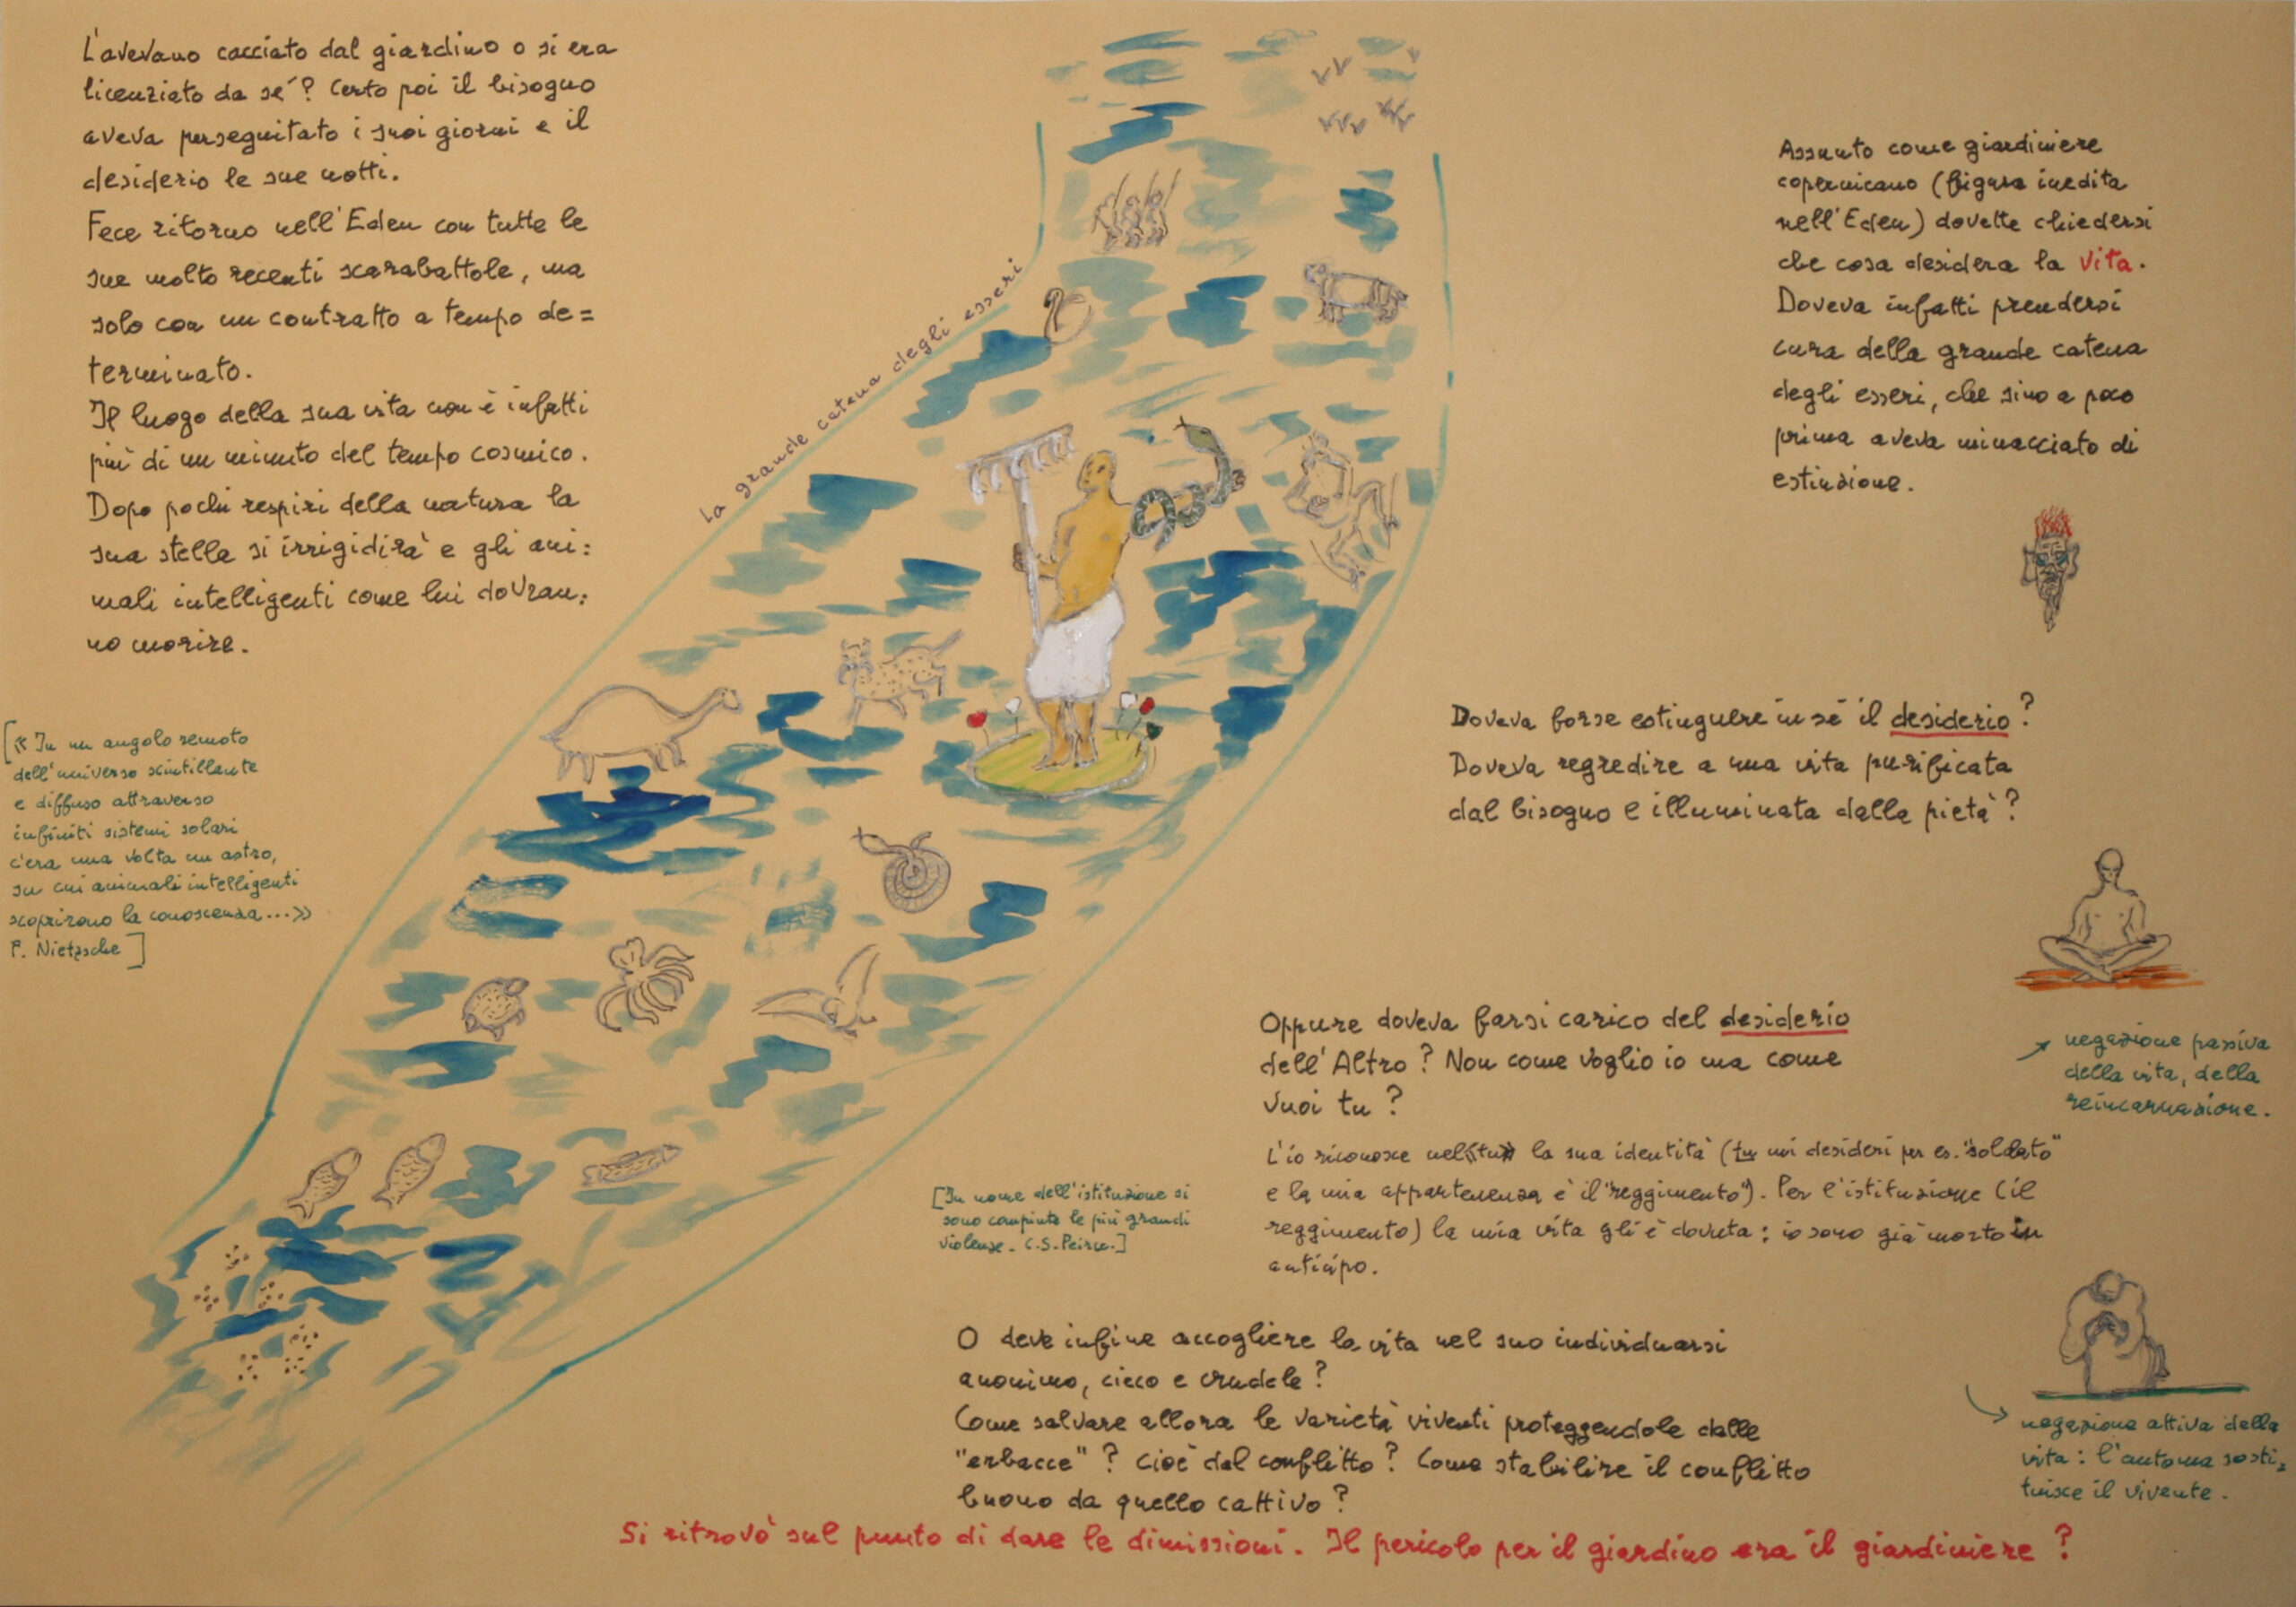 L'avevano cacciato dal giardino o si era
licenziato da sé? Certo poi il bisogno
aveva perseguitato i suoi giorni e il
desiderio le sue notti.
Fece ritorno nell'Eden con tutte le
sue molto recenti scarabattole, ma
solo con un contratto a tempo de=
terminato.
Il luogo della sua vita non è infatti
più di un minuto del tempo cosmico.
Dopo pochi respiri della natura la
sua stella si irrigidirà e gli ani:
mali intelligenti come lui dovran:
no morire.
[«In un angolo remoto
dell'universo scintillante
e diffuso attraverso
infiniti sistemi solari
c'era una volta un astro,
su cui animali intelligenti
scoprirono la conoscenza...»
F. Nietzsche]
La grande catena degli esseri
Assunto come giardiniere
copernicano (figura inedita
nell'Eden) dovette chiedersi
che cosa desidera la vita.
Doveva infatti prendersi
cura della grande catena
degli esseri, che sino a poco
prima aveva minacciato di
estinzione.
Doveva forse estinguere in sé il desiderio?
Doveva regredire a una vita purificata
dal bisogno e illuminata dalla pietà?
negazione passiva
della vita, della
reincarnazione.
Oppure doveva farsi carico del desiderio
dell'Altro? Non come voglio io ma come
vuoi tu?
L'io riconosce nel «tu» la sua identità (tu mi desideri per es. "soldato"
e la mia appartenenza è il "reggimento"). Per l'istituzione (il
reggimento) la mia vita gli è dovuta: io sono già morto in
anticipo.
[In nome dell'istituzione si
sono compiute le più grandi
violenze. C.S. Peirce.]
O deve infine accogliere la vita nel suo individuarsi
anonimo, cieco e crudele?
Come salvare allora le varietà viventi proteggendole dalle
"erbacce"? Cioè dal conflitto? Come stabilire il conflitto
buono da quello cattivo?
negazione attiva della
vita: l'automa sosti:
tuisce il vivente.
Si ritrovò sul punto di dare le dimissioni. Il pericolo per il giardino era il giardiniere?